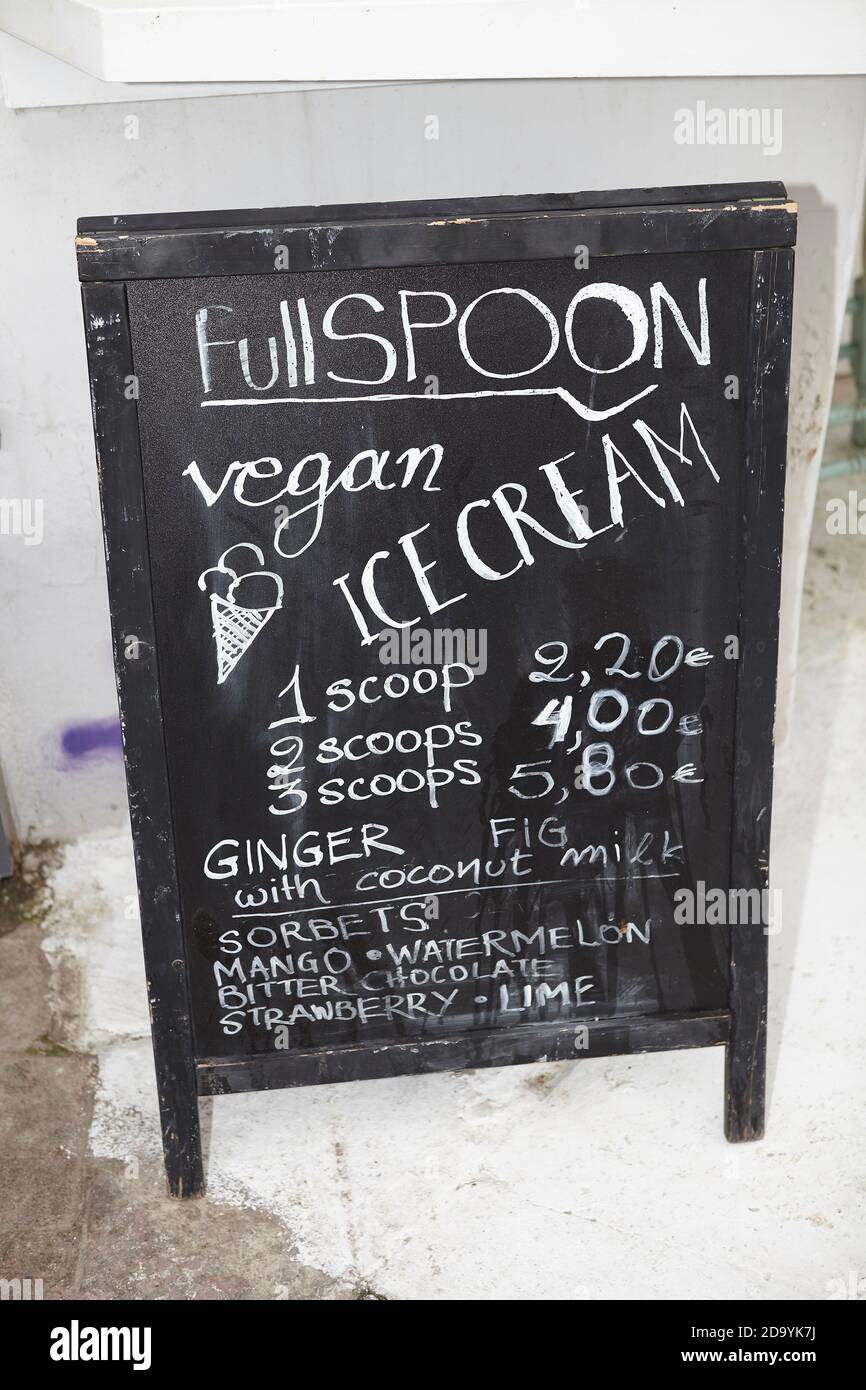 FullSPOON
vegan
ICE CREAM
1 scoop 2,20€
2 scoops 4,00€
3 scoops 5,80€
GINGER FIG
with coconut milk
SORBETS
MANGO • WATERMELON
BITTER CHOCOLATE
STRAWBERRY • LIME
alamy
alamy
alamy
Image ID: 2D9YK7J
www.alamy.com